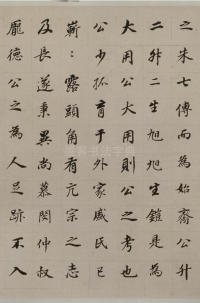 之朱七傳而為始齋公升
二升公二生旭旦生鎧是為
大用公大用則公之考也
公少孤育于外家戚之民已
嶄〻露頭角有亢宗之志
及長遂秉異尚慕閔仲叔
龐德公之為人足跡不入